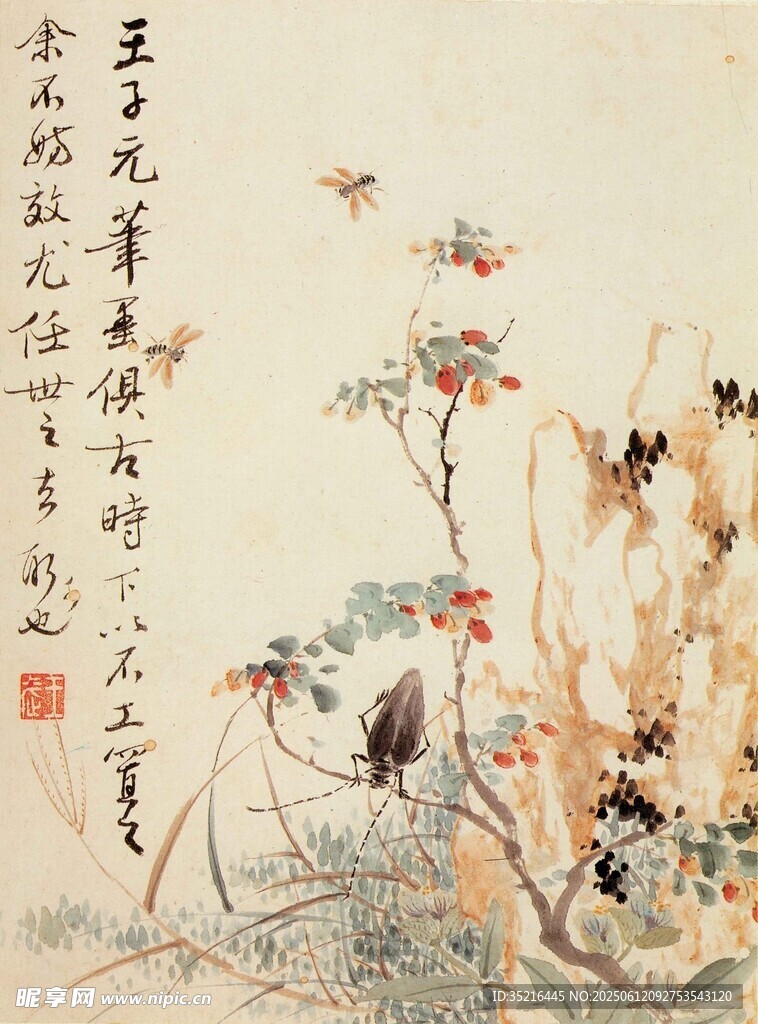 王子元筆墨俱古時下以不工置之
余不妨效尤任世之去取也
昵享网 www.nipic.cn
ID:35216445 NO:20250612092753543120